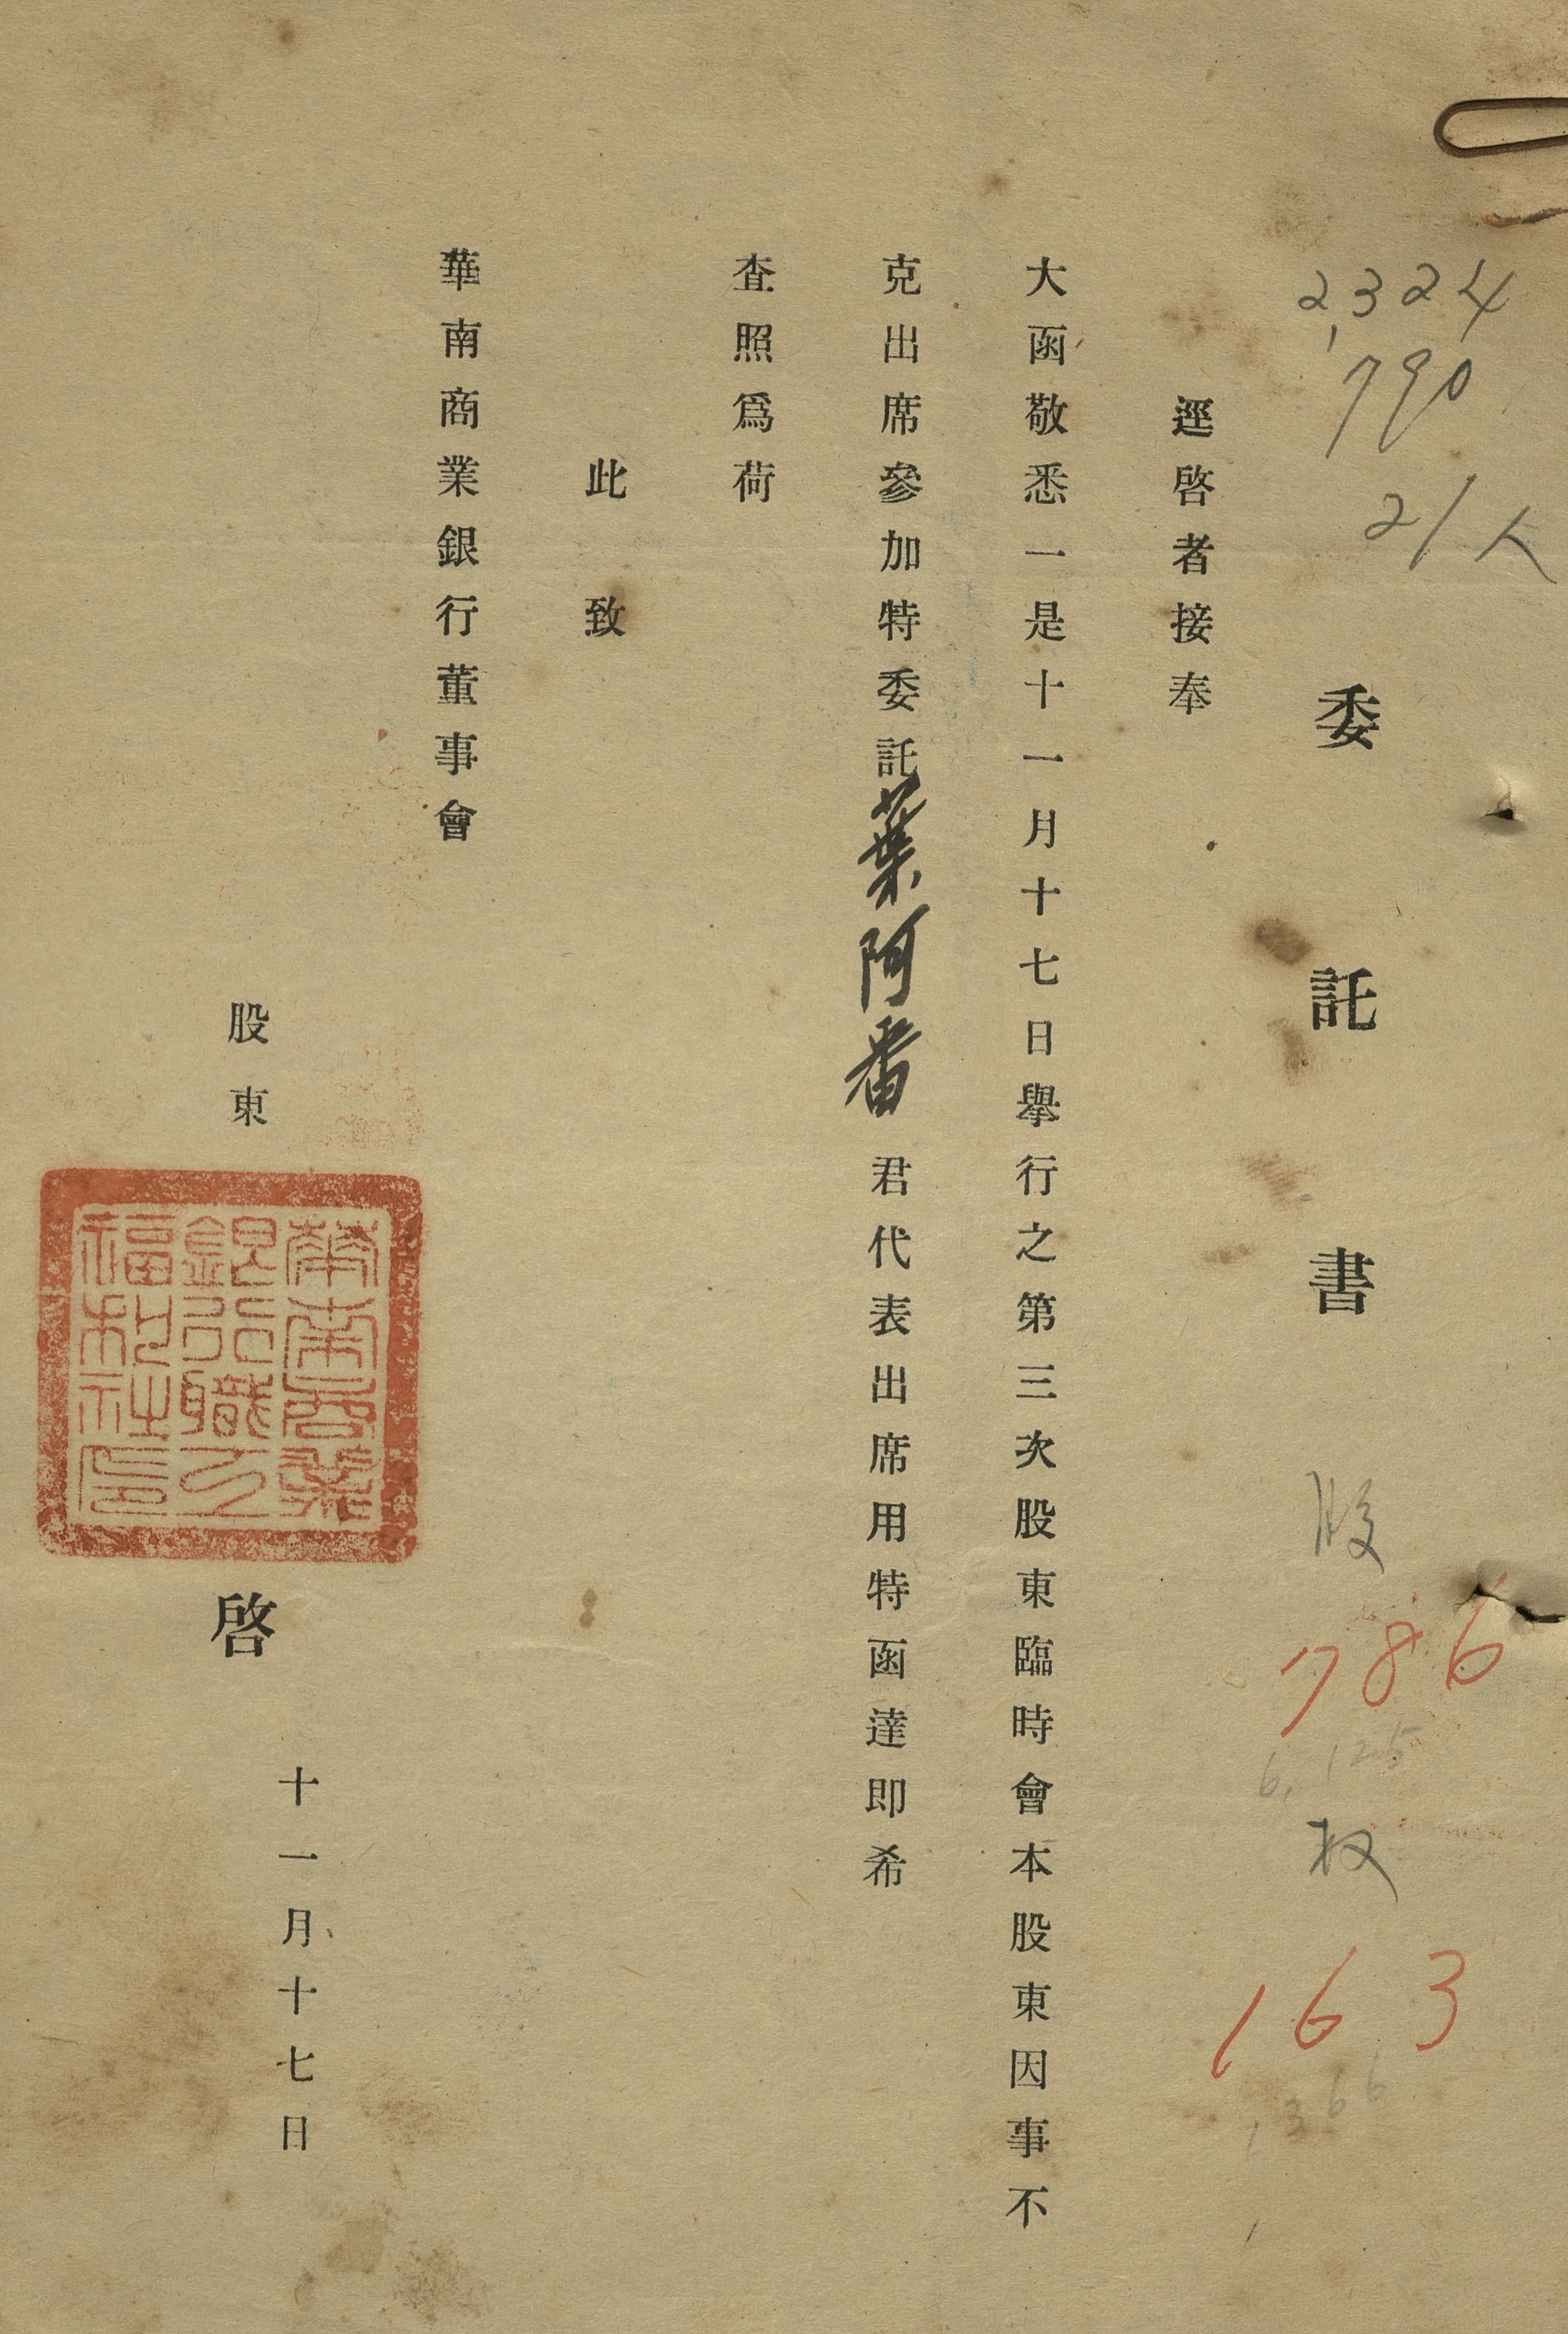 2,324
790
21人
委託書
股
786
6,125
权
163
1,366
逕啓者接奉
大函敬悉一是十一月十七日舉行之第三次股東臨時會本股東因事不
克出席參加特委託葉阿番君代表出席用特函達即希
查照爲荷
此致
華南商業銀行董事會
股東
華南商業
銀行職工
福利社印
啓
十一月十七日